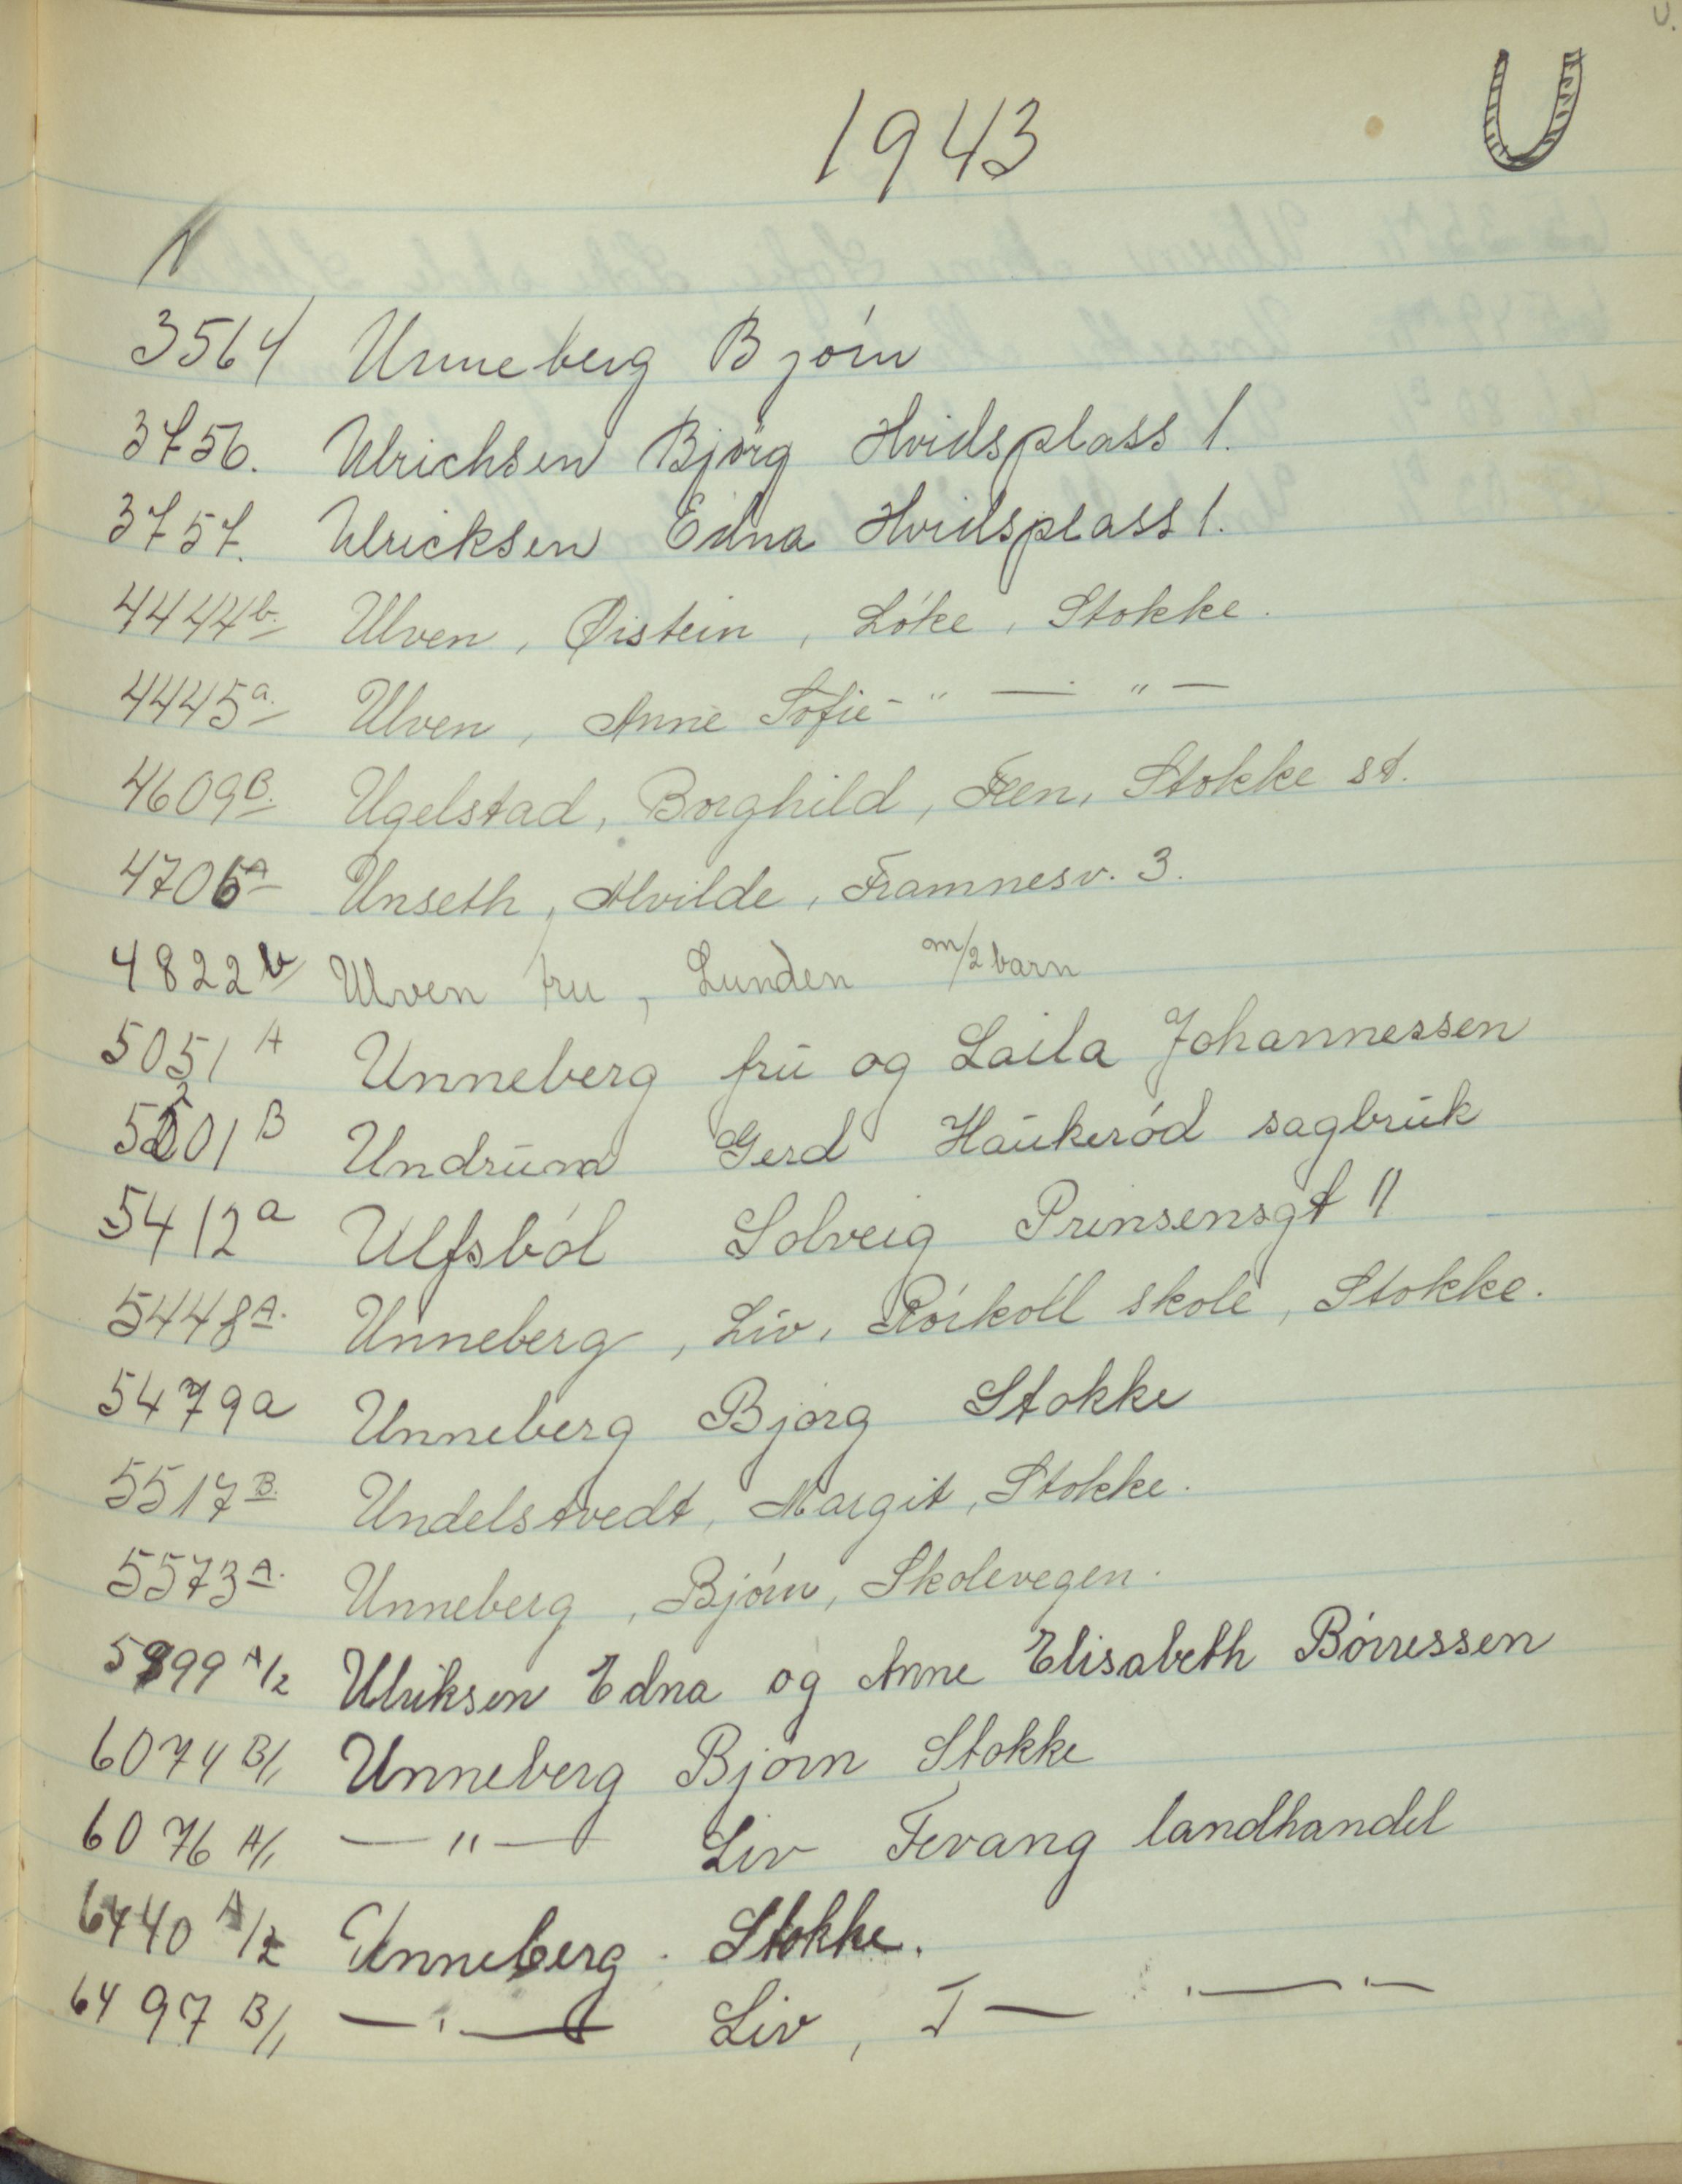 U.
1943 U
N
3564 Unneberg Bjórn
3756. Ulrichsen Bjórg Hvidsplass 1.
3757. Ulricksen Edna Hvidsplass 1.
4444 b. Ulven, Øistein, Lóke, Stokke.
4445 a. Ulven, Anne Sofie - " — " —
4609 B. Ugelstad, Borghild, Feen, Stokke st.
4706 A Unseth, Alvilde, Framnesv. 3.
4822 b Ulven fru, Lunden m/2 barn
5051 A Unneberg frū og Laila Johannessen
5201 B Undrūm Gerd Haūkeród sagbrūk
5412 a Ulfsból Solveig Prinsensgt 11
5448 A. Unneberg, Liv, Rórkoll skole, Stokke.
5479 a Unneberg Bjorg Stokke
5517 B. Undelstvedt, Margit, Stokke.
5573 A. Unneberg, Bjórn, Skolevegen.
5999 A/2 Ulriksen Edna og Anne Elisabeth Bórressen
6074 B/1 Unneberg Bjorn Stokke
6076 A/1 — " — Liv Fevang landhandel
6440 A/2 Unneberg. Stokke.
6497 B/1 — " — Liv, F — " — " —